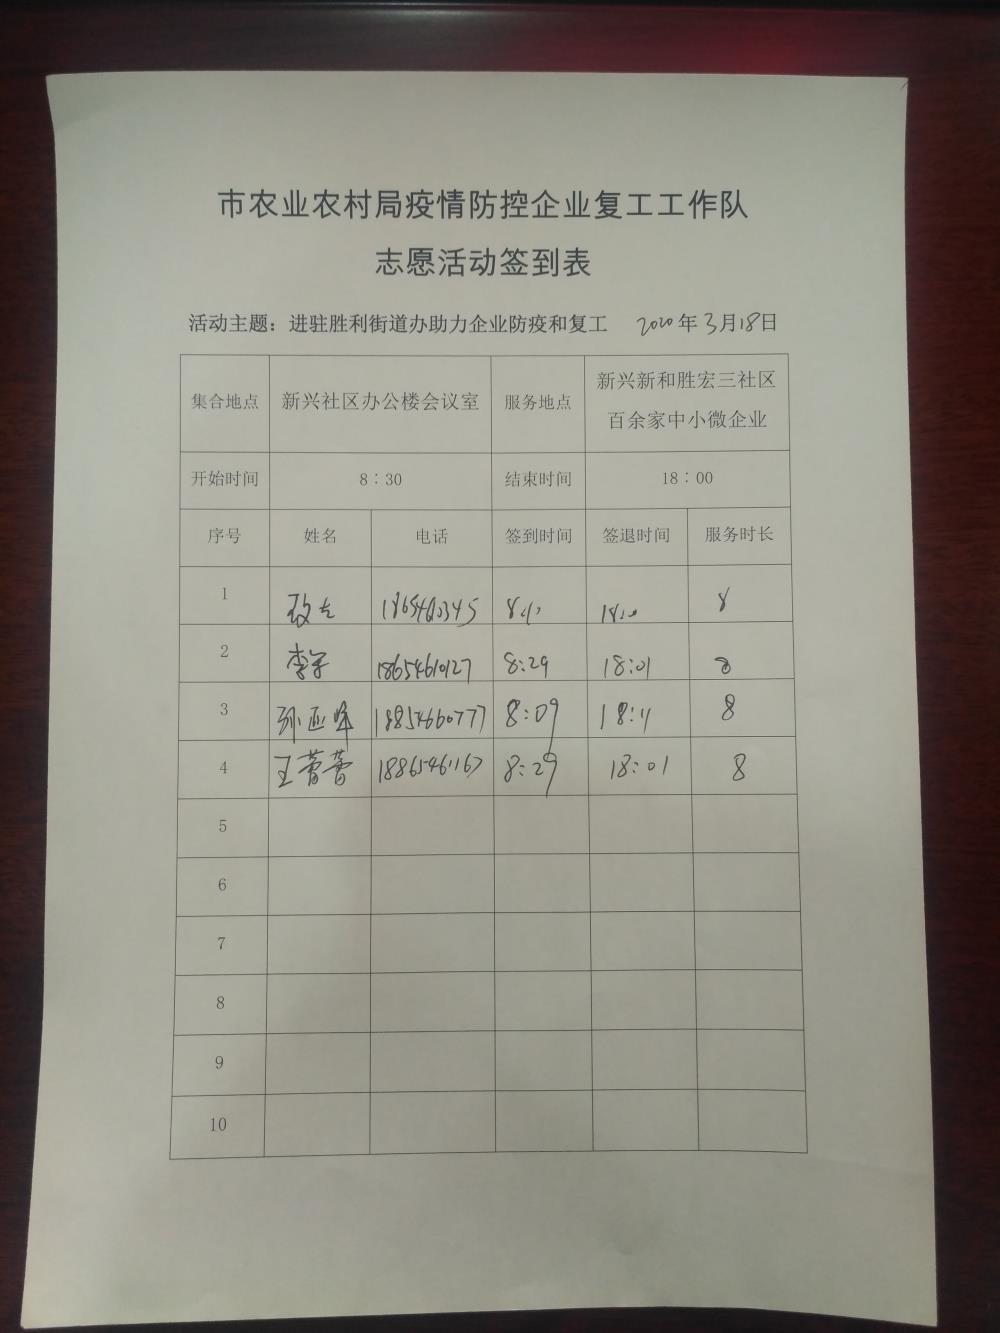 市农业农村局疫情防控企业复工工作队
志愿活动签到表
活动主题：进驻胜利街道办助力企业防疫和复工 2020年3月18日
集合地点 新兴社区办公楼会议室 服务地点 新兴新和胜宏三社区
百余家中小微企业
开始时间 8：30 结束时间 18：00
序号 姓名 电话 签到时间 签退时间 服务时长
1 8
2 李 18654610127 8:29 18:01 8
3 孙亚峰 18854660777 8:09 18:11 8
4 王蕾蕾 18865461167 8:29 18:01 8
5
6
7
8
9
10